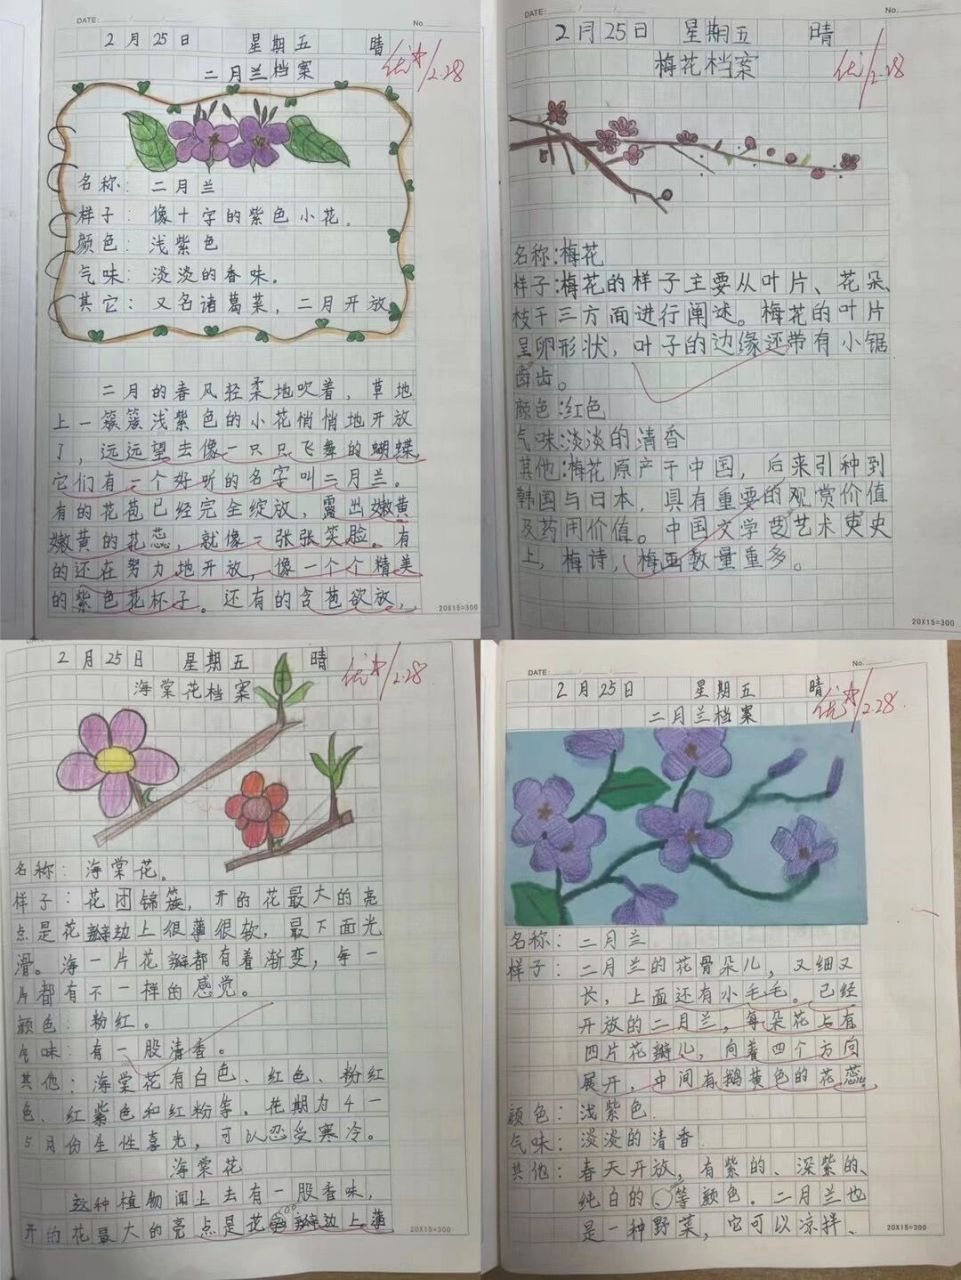 DATE:
No.
2月25日 星期五 晴
优 2.28
二月兰档案
名称：二月兰
样子：像十字的紫色小花。
颜色：浅紫色
气味：淡淡的香味。
其它：又名诸葛菜，二月开放
二月的春风轻柔地吹着，草地
上一簇簇浅紫色的小花悄悄地开放
了，远远望去像一只只飞舞的蝴蝶，
它们有一个好听的名字叫二月兰。
有的花苞已经完全绽放，露出嫩黄
嫩黄的花蕊，就像一张张笑脸。有
的还在努力地开放，像一个个精美
的紫色花杯子。还有的含苞欲放，
20X15=300
DATE:
No.
2月25日 星期五 晴
优 2.28
梅花档案
名称：梅花
样子：梅花的样子主要从叶片、花朵、
枝干三方面进行阐述。梅花的叶片
呈卵形状，叶子的边缘还带有小锯
齿齿。
颜色：红色
气味：淡淡的清香
其他：梅花原产于中国，后来引种到
韩国与日本，具有重要的观赏价值
及药用价值。中国文学艺术史
上，梅诗，梅画数量重多。
20X15=300
2月25日 星期五 晴
优 2.28
海棠花档案
名称：海棠花。
样子：花团锦簇，开的花最大的亮
点是花瓣边上很薄很软，最下面光
滑。海一片花瓣都有着渐变，每一
片都有不一样的感觉。
颜色：粉红。
气味：有一股清香。
其他：海棠花有白色、红色、粉红
色、红紫色和红粉等。花期为4一
5月份生性喜光，可以忍受寒冷。
海棠花
这种植物闻上去有一股香味，
开的花最大的亮点是花瓣边上薄
20X15=300
DATE:
No.
2月25日 星期五 晴
优 2.28
二月兰档案
名称：二月兰
样子：二月兰的花骨朵儿，又细又
长，上面还有小毛毛。已经
开放的二月兰，每朵花上有
四片花瓣儿，向着四个方向
展开，中间有鹅黄色的花蕊。
颜色：浅紫色
气味：淡淡的清香
其他：春天开放，有紫的、深紫的、
纯白的等颜色。二月兰也
是一种野菜，它可以凉拌、
20X15=300